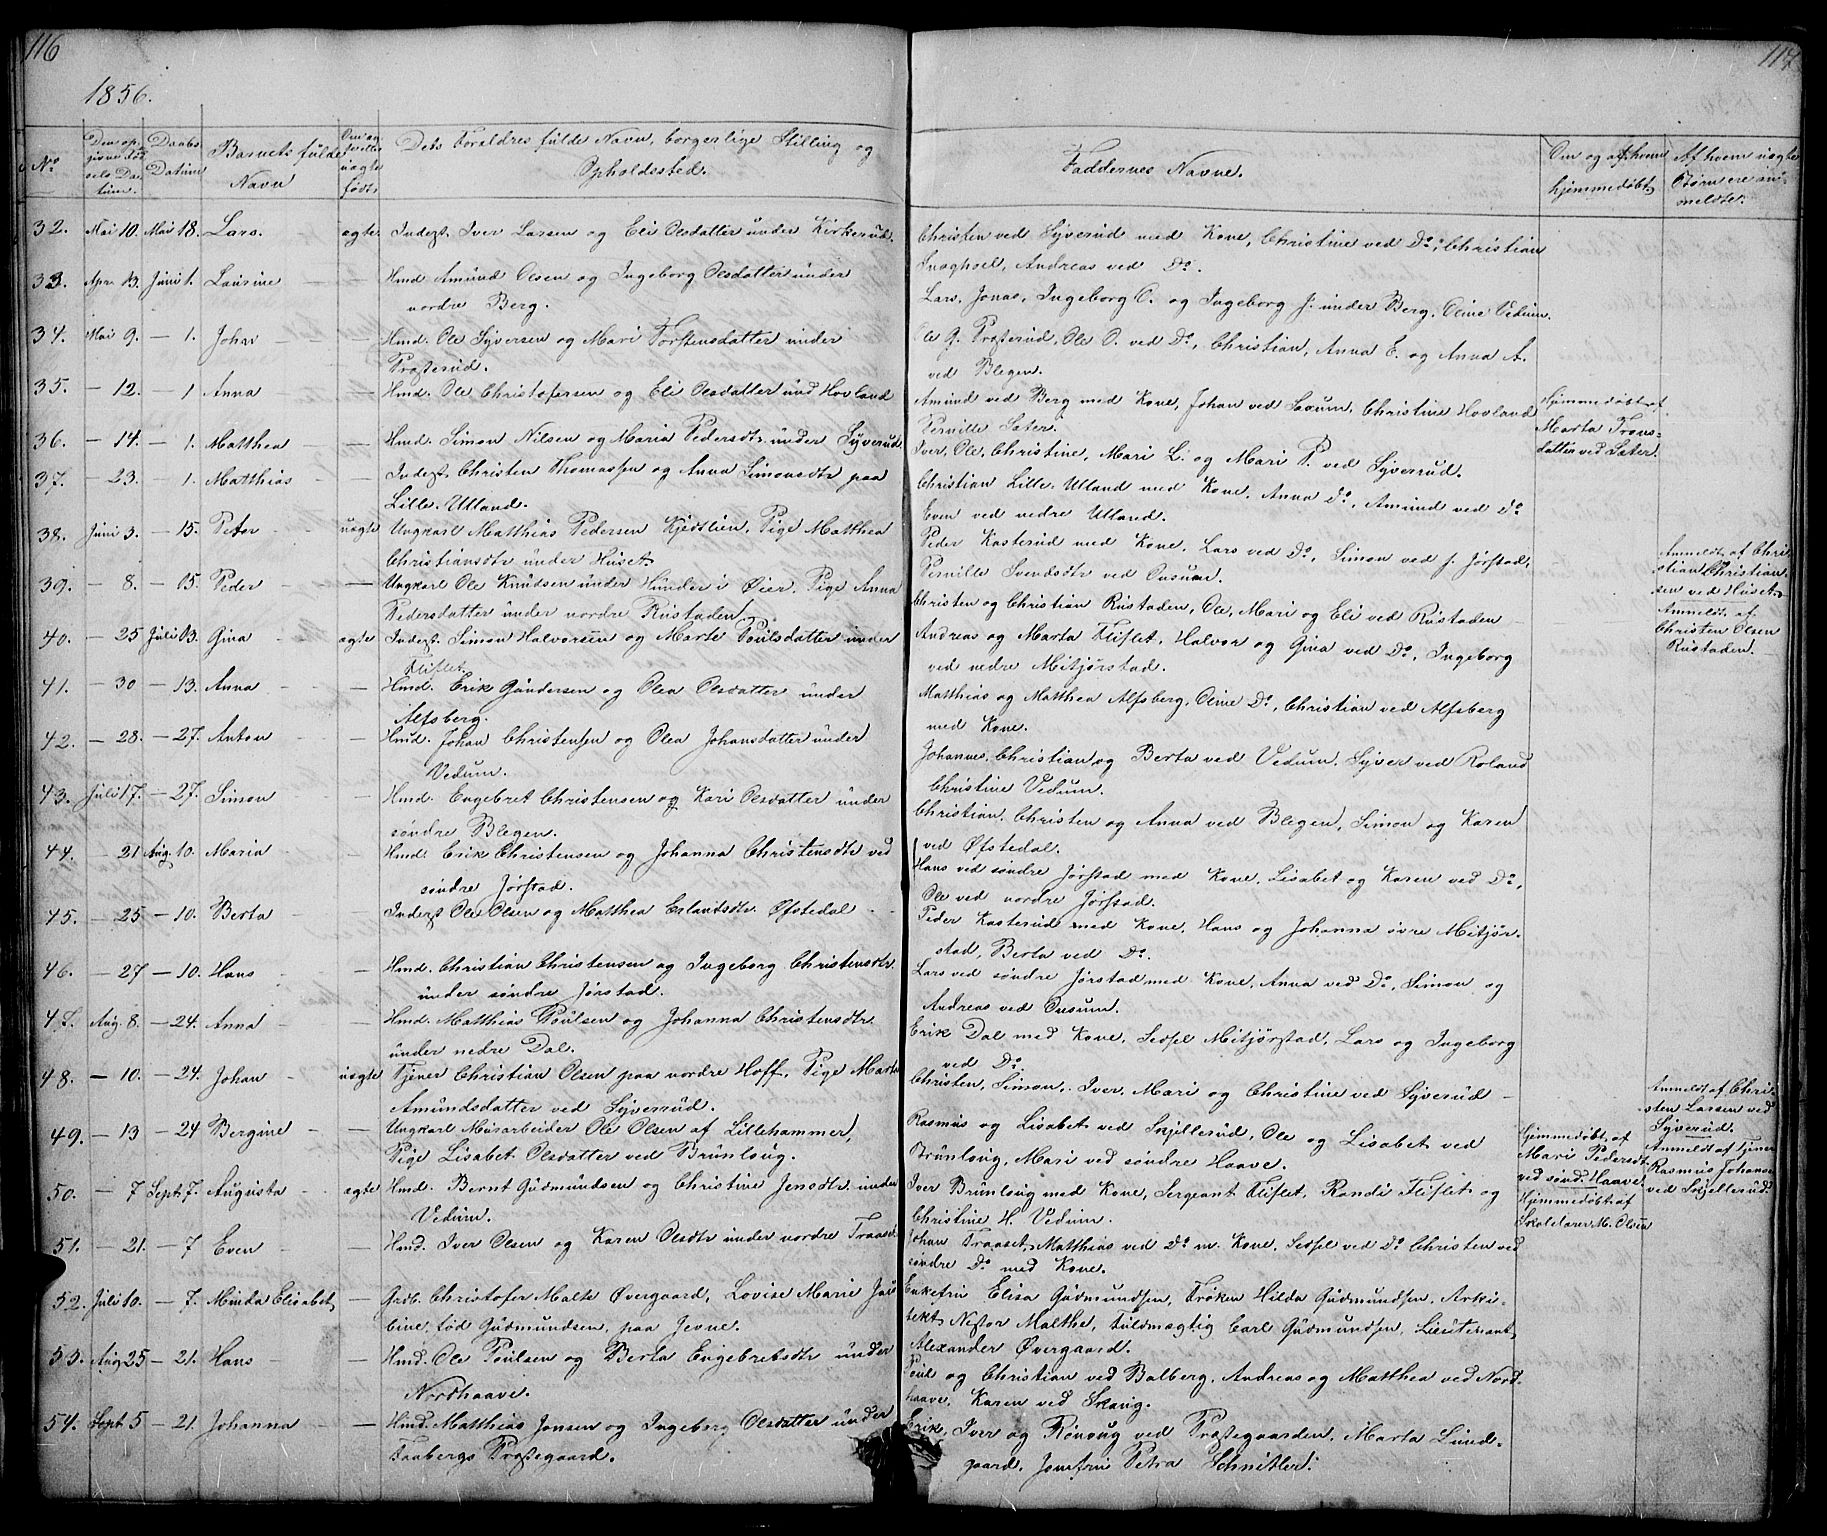 116
1856.
No
Den opgivne Fødsels Datum.
Daabs Datum
Barnets fulde Navn
Om ægte eller uægte født.
Dets Forældres fulde Navn, borgerlige Stilling og Opholdssted.
32. Mai 10. Mai 18. Lars. ægte Inderst. Iver Larsen og Eli Olsdatter under Kirkerud.
33. Apr. 13. Juni 1. Laurine — Hmd. Amund Olsen og Ingeborg Olsdatter under
nordre Berg.
34. Mai 9. — 1. John — Hmd. Ole Syversen og Mari Torstensdatter under
Præsterud.
35. — 12. — 1 Anna — Hmd. Ole Christofersen og Eli Olsdatter und Hovland
36. — 14. — 1. Matthea — Hmd. Simon Nilsen og Maria Pedersdtr under Syverud.
37. — 23. — 1. Matthias — Inderst. Christen Thomassen og Anna Simonsdtr paa
Lille Utland.
38. Juni 3. — 15. Peter uægte Ungkarl Matthias Pedersen Kjedtlien, Pige Matthea
Christiansdtr under Huset
39. — 8. — 15. Peder — Ungkarl Ole Knudsen under Hunder i Øier, Pige Anna
Pedersdatter under nordre Rustaden.
40. — 25 Juli 13. Gina ægte Inderst. Simon Halvorsen og Marte Poulsdatter under
Fliflet.
41. — 30 — 13. Anna — Hmd. Erik Gundersen og Olea Olsdatter under
Alfsberg.
42. — 28. — 27. Anton — Hmd. Johan Christensen og Olea Johansdatter under
Vedum.
43. Juli 17. — 27. Simon — Hmd. Engebret Christensen og Kari Olsdatter under
søndre Blegen.
44. — 21 Aug. 10. Maria — Hmd. Erik Christensen og Johanna Christensdtr ved
søndre Jørstad.
45. — 25 — 10. Berta — Inderst Ole Olsen og Matthea Erlandsdtr. Øfstedal
46. — 27 — 10. Hans — Hmd. Christian Christensen og Ingeborg Christensdtr.
under søndre Jørstad.
47. Aug. 8. — 24. Anna — Hmd. Matthias Poulsen og Johanna Christensdtr.
under nedre Dal.
48. — 10. — 24. Johan uægte Tjener Christian Olsen paa nordre Hoff, Pige Marte
Amundsdatter ved Syverrud.
49. — 13 — 24 Bergine — Ungkarl Murarbeider Ole Olsen af Lillehammer,
Pige Lisabet Olsdatter ved Brunloug.
50. — 7 Sept. 7. Augusta ægte Hmd. Bernt Gudmundsen og Christine Jensdtr. under
Vedum.
51. — 21. — 7 Even — Hmd. Iver Olsen og Karen Olsdtr under nordre Traaset
52. Juli 10. — 7. Minda Elisabet — Grdb. Christofer Malte Øvergaard, Lovise Marie Ja
bine, fød Gudmundsen, paa Jevne.
53. Aug 25 — 21. Hans — Hmd. Ole Poulsen og Berta Engebretsdtr under
Nordhaave.
54. Sept 5 — 21. Johanna — Hmd. Matthias Jonsen og Ingeborg Olsdatter under
Faabergs Præstegaard.
117
Faddernes Navne.
Om og af hvem hjemmedøbt
Af hvem uægte Børn ere anmeldte.
Christen ved Syverud med Kone, Christine ved Do, Christian
Snaghoel, Andreas ved Do.
Lars, Jonas, Ingeborg O. og Ingeborg J. under Berg, Oline Vedum.
Ole G. Præsterud, Ole O. ved Do, Christian, Anna E. og Anna A.
ved Blegen.
Amund ved Berg med Kone, Johan ved Saxum, Christine Hovland
Pernille Sater.
Hjemmedøbt af
Marta Trons-
datter ved Sater.
Iver, Ole, Christine, Mari L. og Mari P. ved Syverud.
Christian Lille Utland med Kone, Anna Do, Amund ved Do
Even ved nedre Utland.
Peder Kasterud med Kone, Lars ved Do, Simon ved s. Jørstad,
Pernille Svendsdtr ved Onsum.
Anmeldt af Chri-
stian Christian-
sen ved Huset
Christen og Christian Rustaden, Ole, Mari og Eli ved Rustaden
Anmeldt af
Christen Olsen
Rustaden.
Andreas og Marta Fliflet, Halvor og Gina ved Do, Ingeborg
ved nedre Mitjørstad.
Matthias og Matthea Alfsberg, Oline Do, Christian ved Alfsberg
med Kone.
Johannes, Christian og Berta ved Vedum, Syver ved Roland
Christine Vedum.
Christian, Christen og Anna ved Blegen, Simon og Karen
ved Øfstedal.
Hans ved søndre Jørstad med Kone, Lisabet og Karen ved Do,
Ole ved nordre Jørstad.
Peder Kasterud med Kone, Hans og Johanna øvre Mitjør-
stad, Berta ved Do.
Lars ved søndre Jørstad med Kone, Anna ved Do, Simon og
Andreas ved Onsum.
Erik Dal med Kone, Sedsel Mitjørstad, Lars og Ingeborg
ved Do.
Christen, Simon, Iver, Mari og Christine ved Syverud
Anmeldt af Chri-
sten Larsen ved
Syverud.
Rasmus og Lisabet ved Skjellerud, Ole og Lisabet ved
Brunloug, Mari ved søndre Haave.
Hjemmedøbt af
Mari Pedersdtr
ved sønd. Haave
Anmeldt af Tjener
Rasmus Johans
ved Skjellerud.
Iver Brunloug med Kone, Sergeant Fliflet, Randi Fliflet og
Christine H. Vedum.
Hjemmedøbt af
Skolelærer M. Olsen
Johan Traaset, Matthias ved Do m. Kone, Sedsel ved Do Christen ved
søndre Do med Kone.
Enkefru Elisa Gudmundsen, Frøken Hilda Gudmundsen, Arki-
tekt Nestor Malthe, Fuldmægtig Carl Gudmundsen, Lieutenant
Alexander Øvergaard.
Poul og Christian ved Balberg, Andreas og Matthea ved Nord-
haave, Karen ved Skaug.
Erik, Iver og Rønnoug ved Præstegaarden, Marta Lund-
gaard, Jomfru Petra Schnitler.